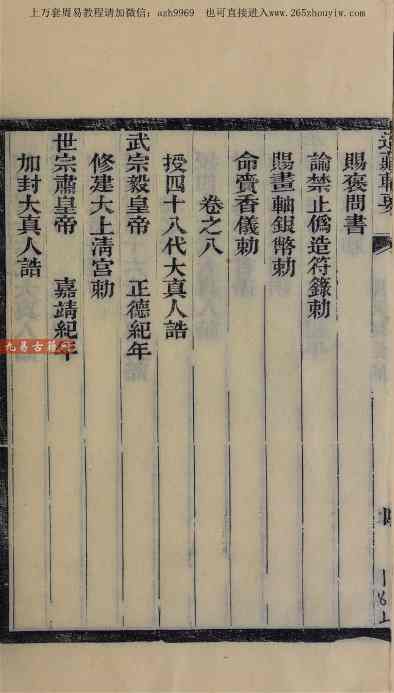 上万套周易教程请加微信:azh9969 也可直接进入www.265zhouyiw.com
賜褒問書
諭禁止僞造符籙勅
賜畫軸銀幣勅
命賫香儀勅
卷之八
授四十八代大真人誥
武宗毅皇帝 正德紀年
修建大上清宮勅
世宗肅皇帝 嘉靖紀年
加封大真人誥
九易古籍